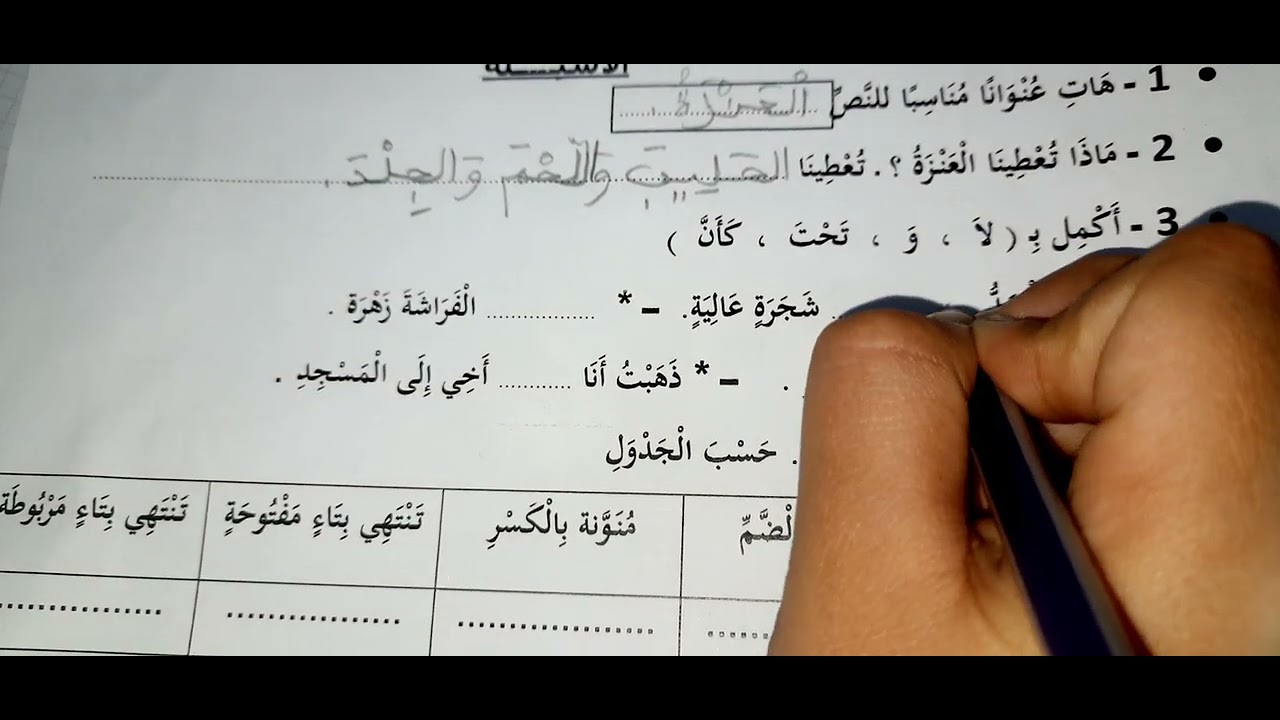 الأسئـــلة
1 - هَاتِ عُنْوَانًا مُنَاسِبًا للنَّصِّ
2 - مَاذَا تُعْطِينَا الْعَنْزَةُ ؟ . تُعْطِينَا الحَلِيبَ وَاللَّحْمَ وَالجِلْدَ .
3 - أَكْمِل بِـ ( لاَ ، وَ ، تَحْتَ ، كَأَنَّ )
شَجَرَةٍ عَالِيَةٍ. – * ................ الْفَرَاشَةَ زَهْرَة .
. – * ذَهَبْتُ أَنَا ........... أَخِي إِلَى الْمَسْجِدِ .
. حَسْبَ الْجَدْوَلِ
مُنَوَّنة بِالْكَسْرِ تَنْتَهِي بِتَاءٍ مَفْتُوحَةٍ تَنْتَهِي بِتَاءٍ مَرْبُوطَة